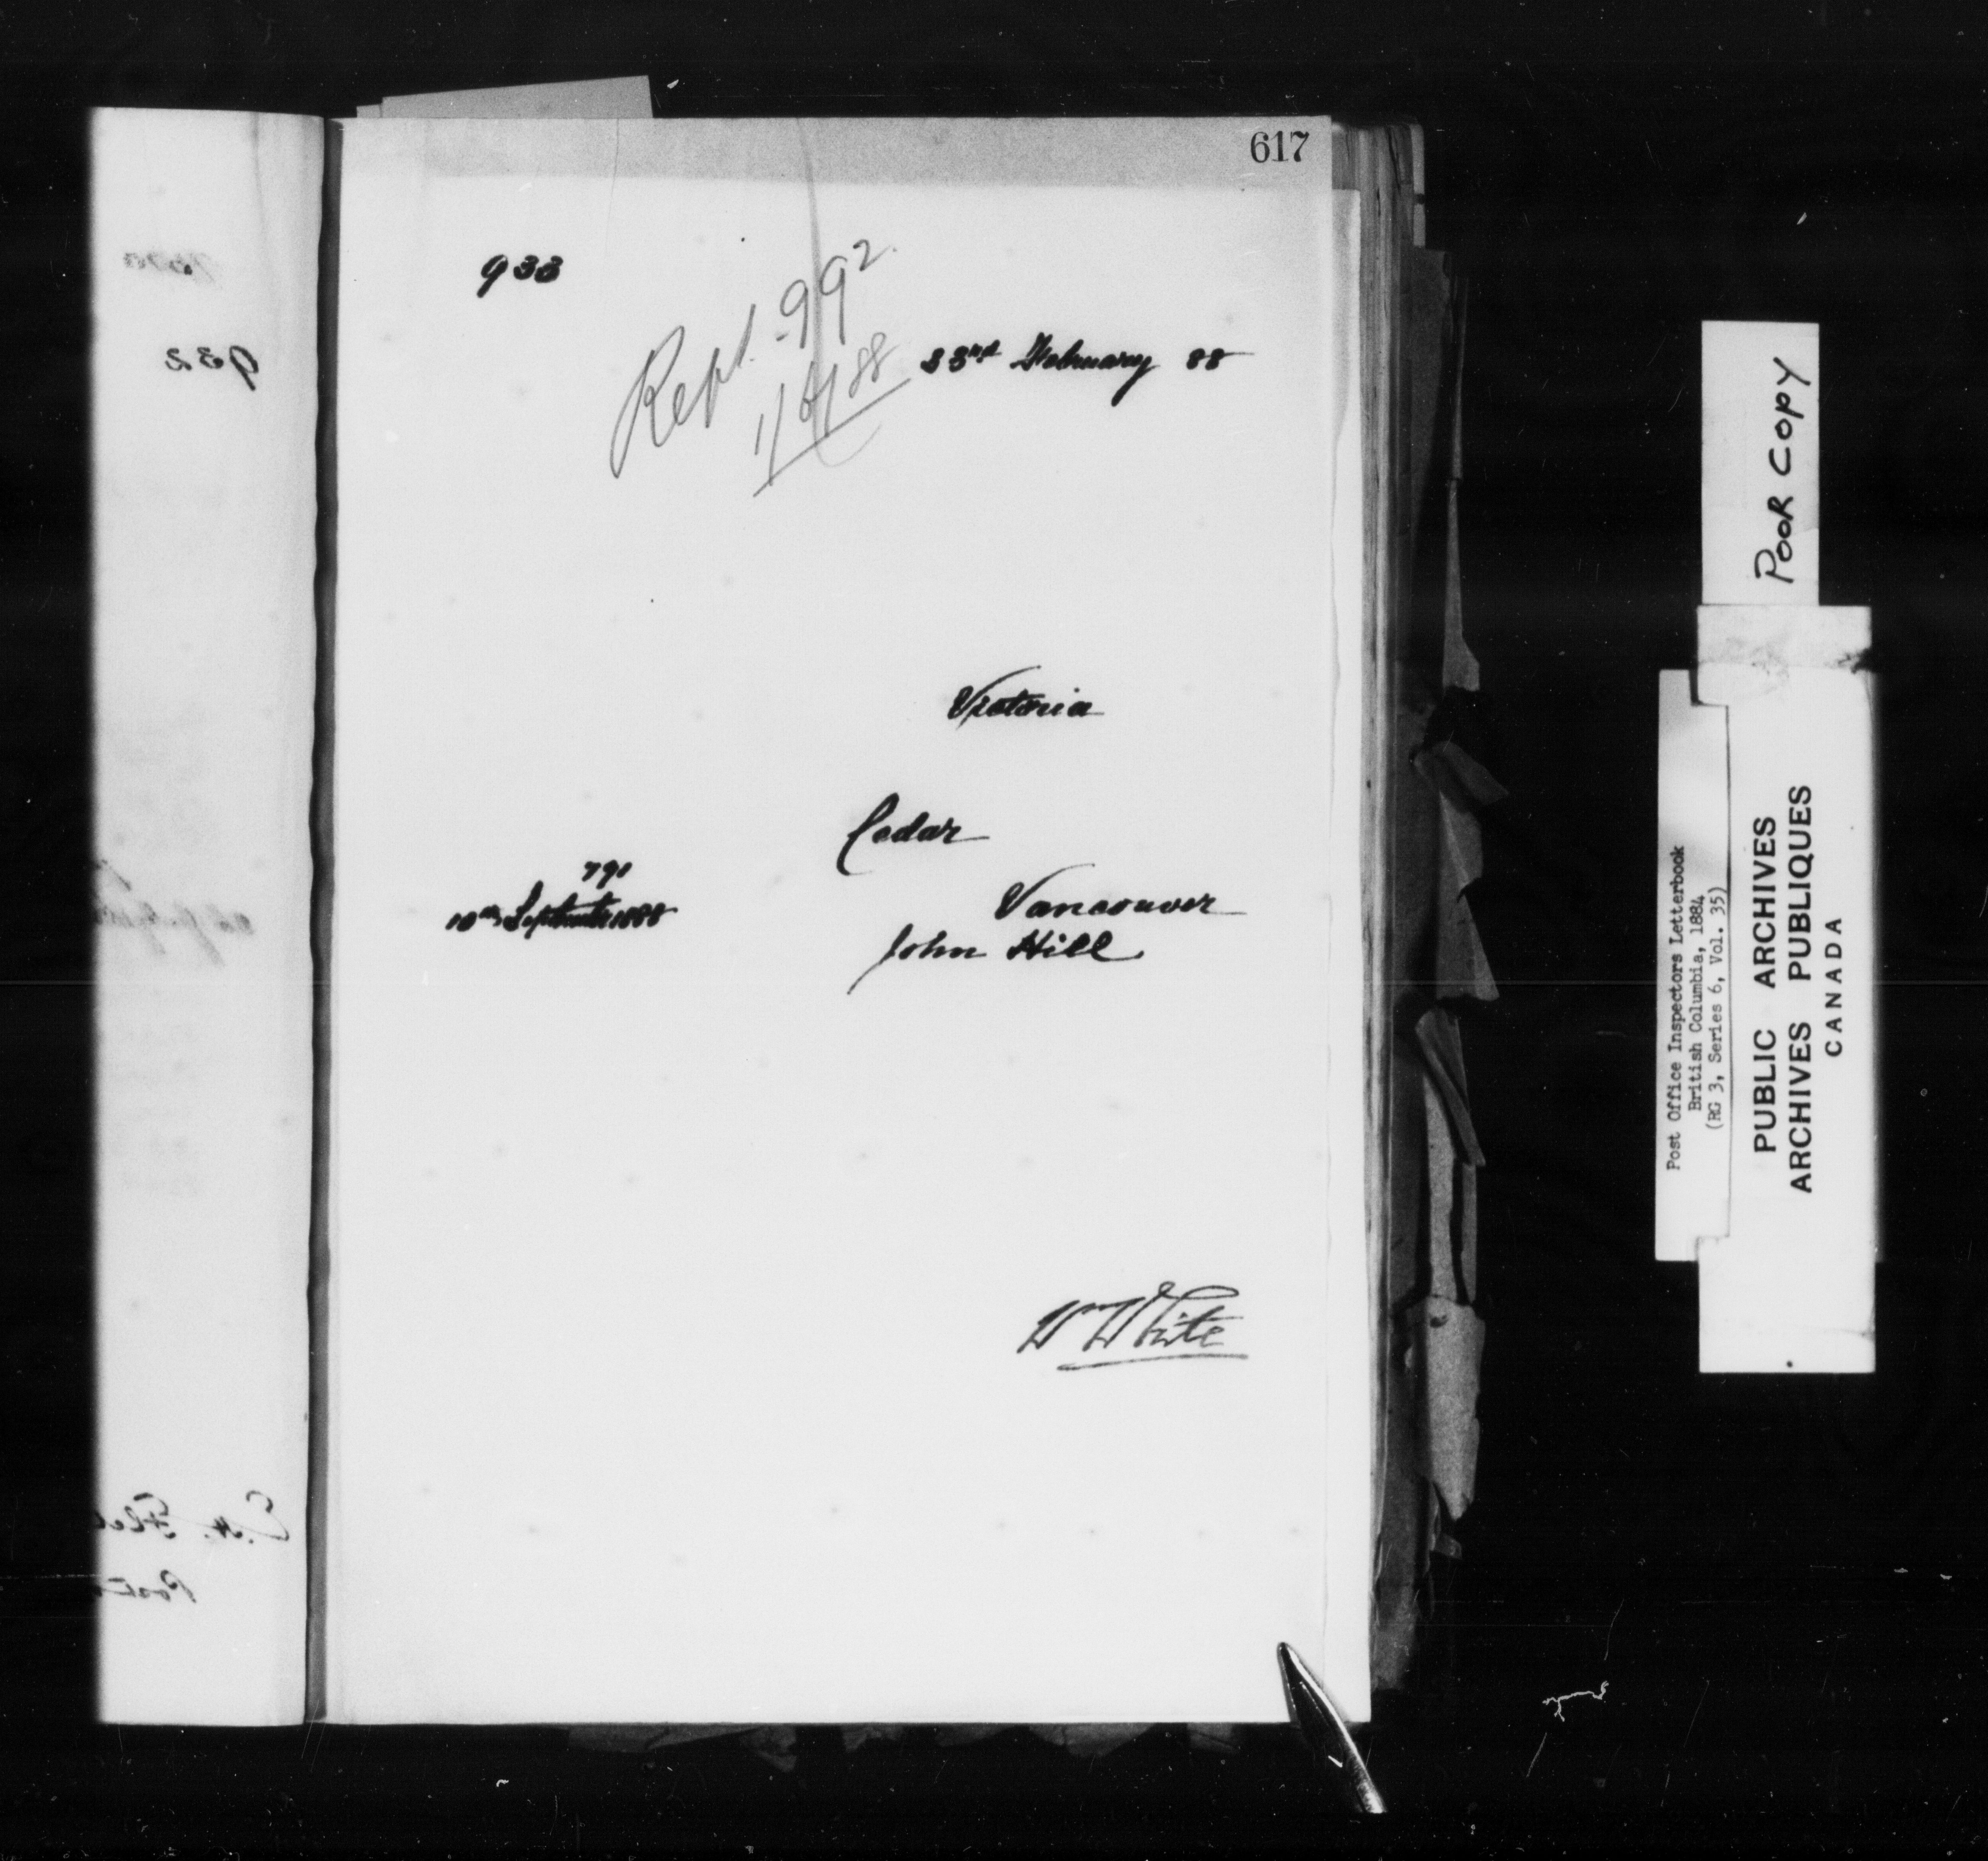 617
933
Rept. 992
1/4/88
23rd February 88
Victoria
Cedar
791
10th September 1888
Vancouver
John Hill
W White
932
E.H. Flet
Post
POOR COPY
Post Office Inspectors Letterbook
British Columbia, 1884
(RG 3, Series 6, Vol. 35)
PUBLIC ARCHIVES
ARCHIVES PUBLIQUES
CANADA